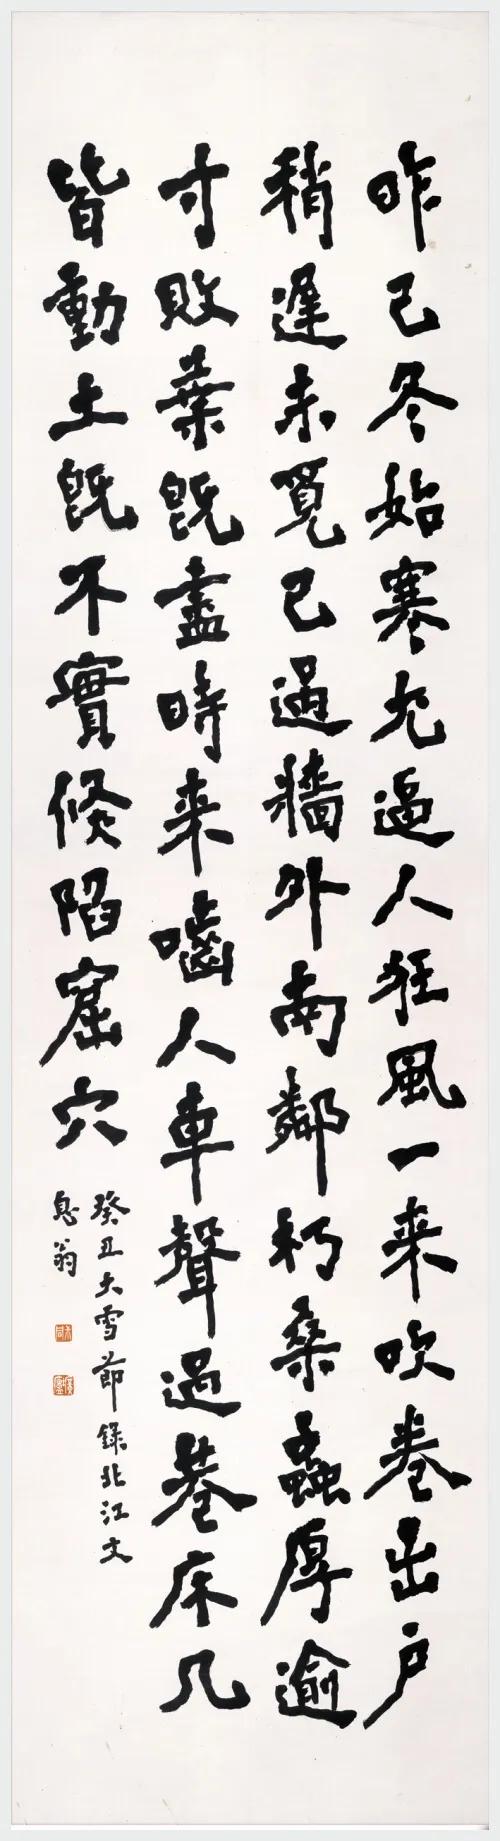 昨已冬始寒尤逼人狂風一来吹卷出户
稍遲未覓已過牆外南鄰朽桑蟲厚逾
寸敗葉既盡時来嚙人車聲過巷床几
皆動土既不實倏陷窟穴
癸丑大雪節錄北江文
息翁